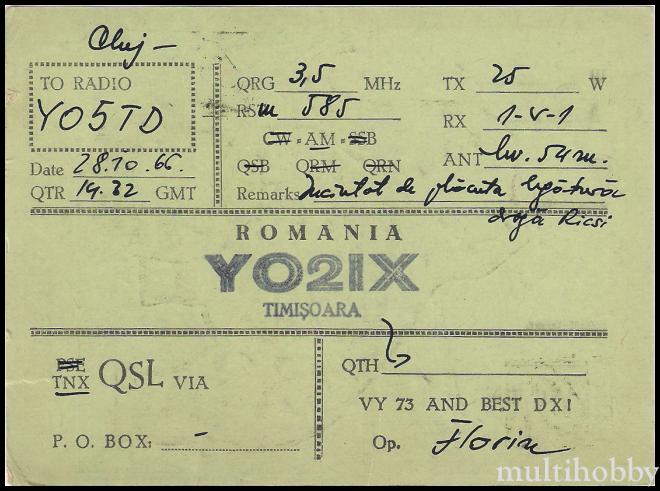 Cluj -
TO RADIO
YO5TD
Date 28.10.66.
QTR 19.32 GMT
QRG 3,5 MHz
RSM 585
CW - AM - SSB
QSB QRM QRN
TX 25 W
RX 1-V-1
ANT Lw. 54m.
Remarks Încântat de plăcuta legătură
dragă Ricsi
ROMANIA
YO2IX
TIMIȘOARA
PSE
TNX QSL VIA
P. O. BOX: -
QTH
VY 73 AND BEST DX!
Op. Florin
multihobby